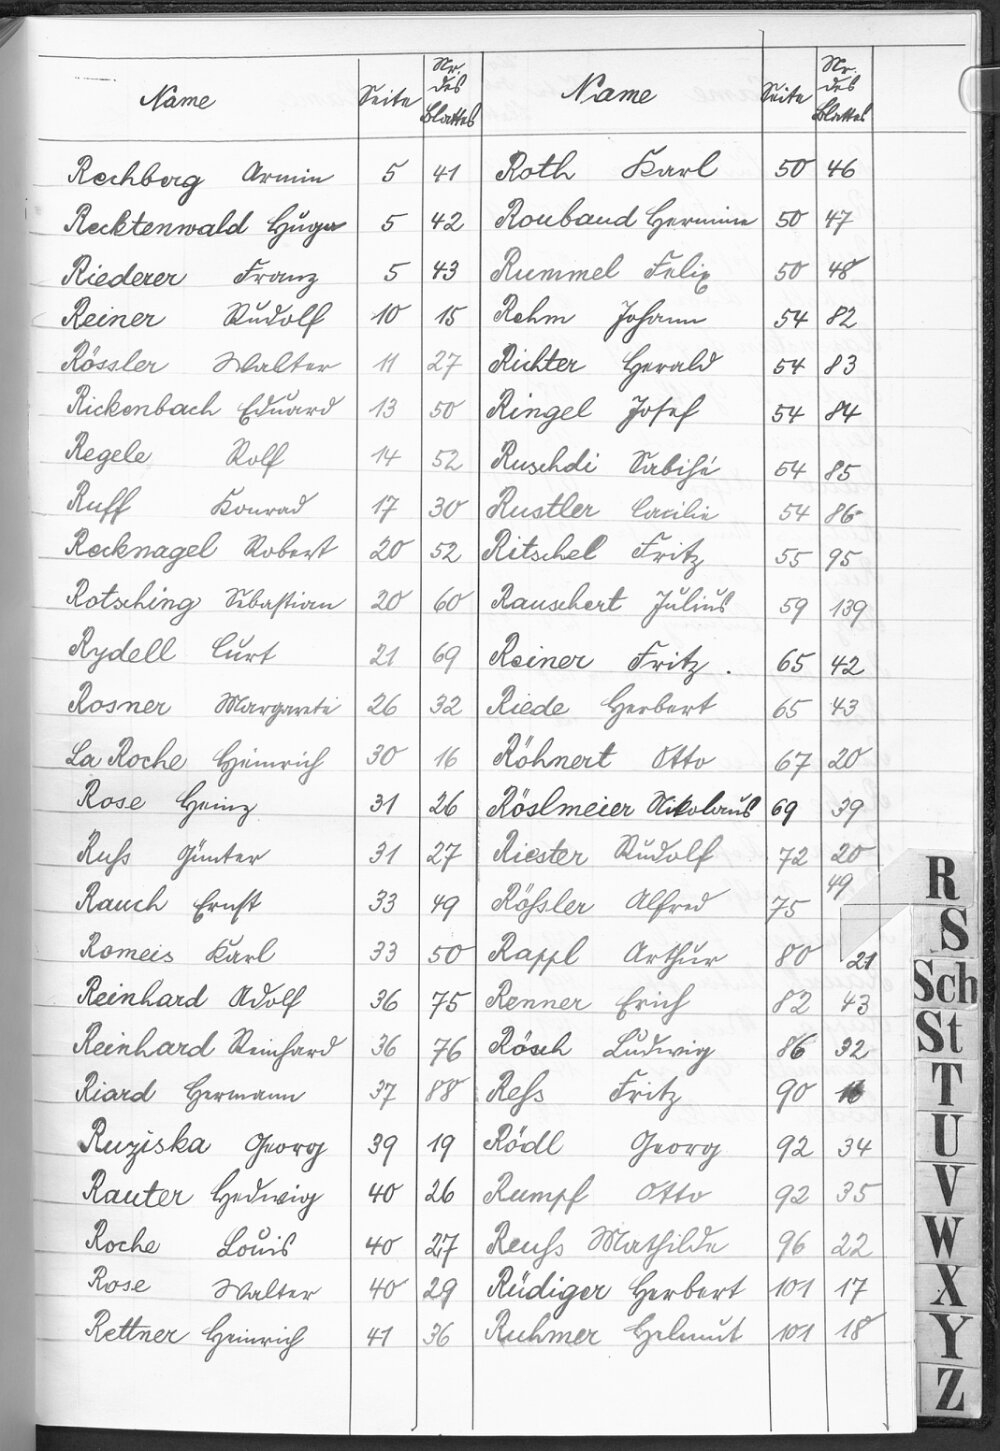 Name Seite Nr. des Blattes
Rechberg Armin 5 41
Recktenwald Hugo 5 42
Riederer Franz 5 43
Reiner Rudolf 10 15
Rössler Walter 11 27
Rickenbach Eduard 13 50
Regele Rolf 14 52
Ruff Konrad 17 30
Recknagel Robert 20 52
Rotsching Sebastian 20 60
Rydell Curt 21 69
Rosner Margarete 26 32
La Roche Heinrich 30 16
Rose Heinz 31 26
Ruhs Günter 31 27
Rauch Ernst 33 49
Romeis Karl 33 50
Reinhard Adolf 36 75
Reinhard Reinhard 36 76
Riard Hermann 37 88
Ruziska Georg 39 19
Rauter Hedwig 40 26
Roche Louis 40 27
Rose Walter 40 29
Rettner Heinrich 41 36
Name Seite Nr. des Blattes
Roth Karl 50 46
Roubaud Hermine 50 47
Rummel Felix 50 48
Rehm Johann 54 82
Richter Herald 54 83
Ringel Josef 54 84
Ruschdi Sabihé 54 85
Rustler Cäcilie 54 86
Ritschel Fritz 55 95
Rauschert Julius 59 139
Reiner Fritz . 65 42
Riede Herbert 65 43
Röhnert Otto 67 20
Röslmeier Nikolaus 69 39
Riester Rudolf 72 20
Rößler Alfred 75 49
Rappl Arthur 80 21
Renner Erich 82 43
Rösch Ludwig 86 32
Reß Fritz 90
Rödl Georg 92 34
Rumpf Otto 92 35
Reuß Mathilde 96 22
Rüdiger Herbert 101 17
Ruhmer Helmut 101 18
R
S
Sch
St
T
U
V
W
X
Y
Z